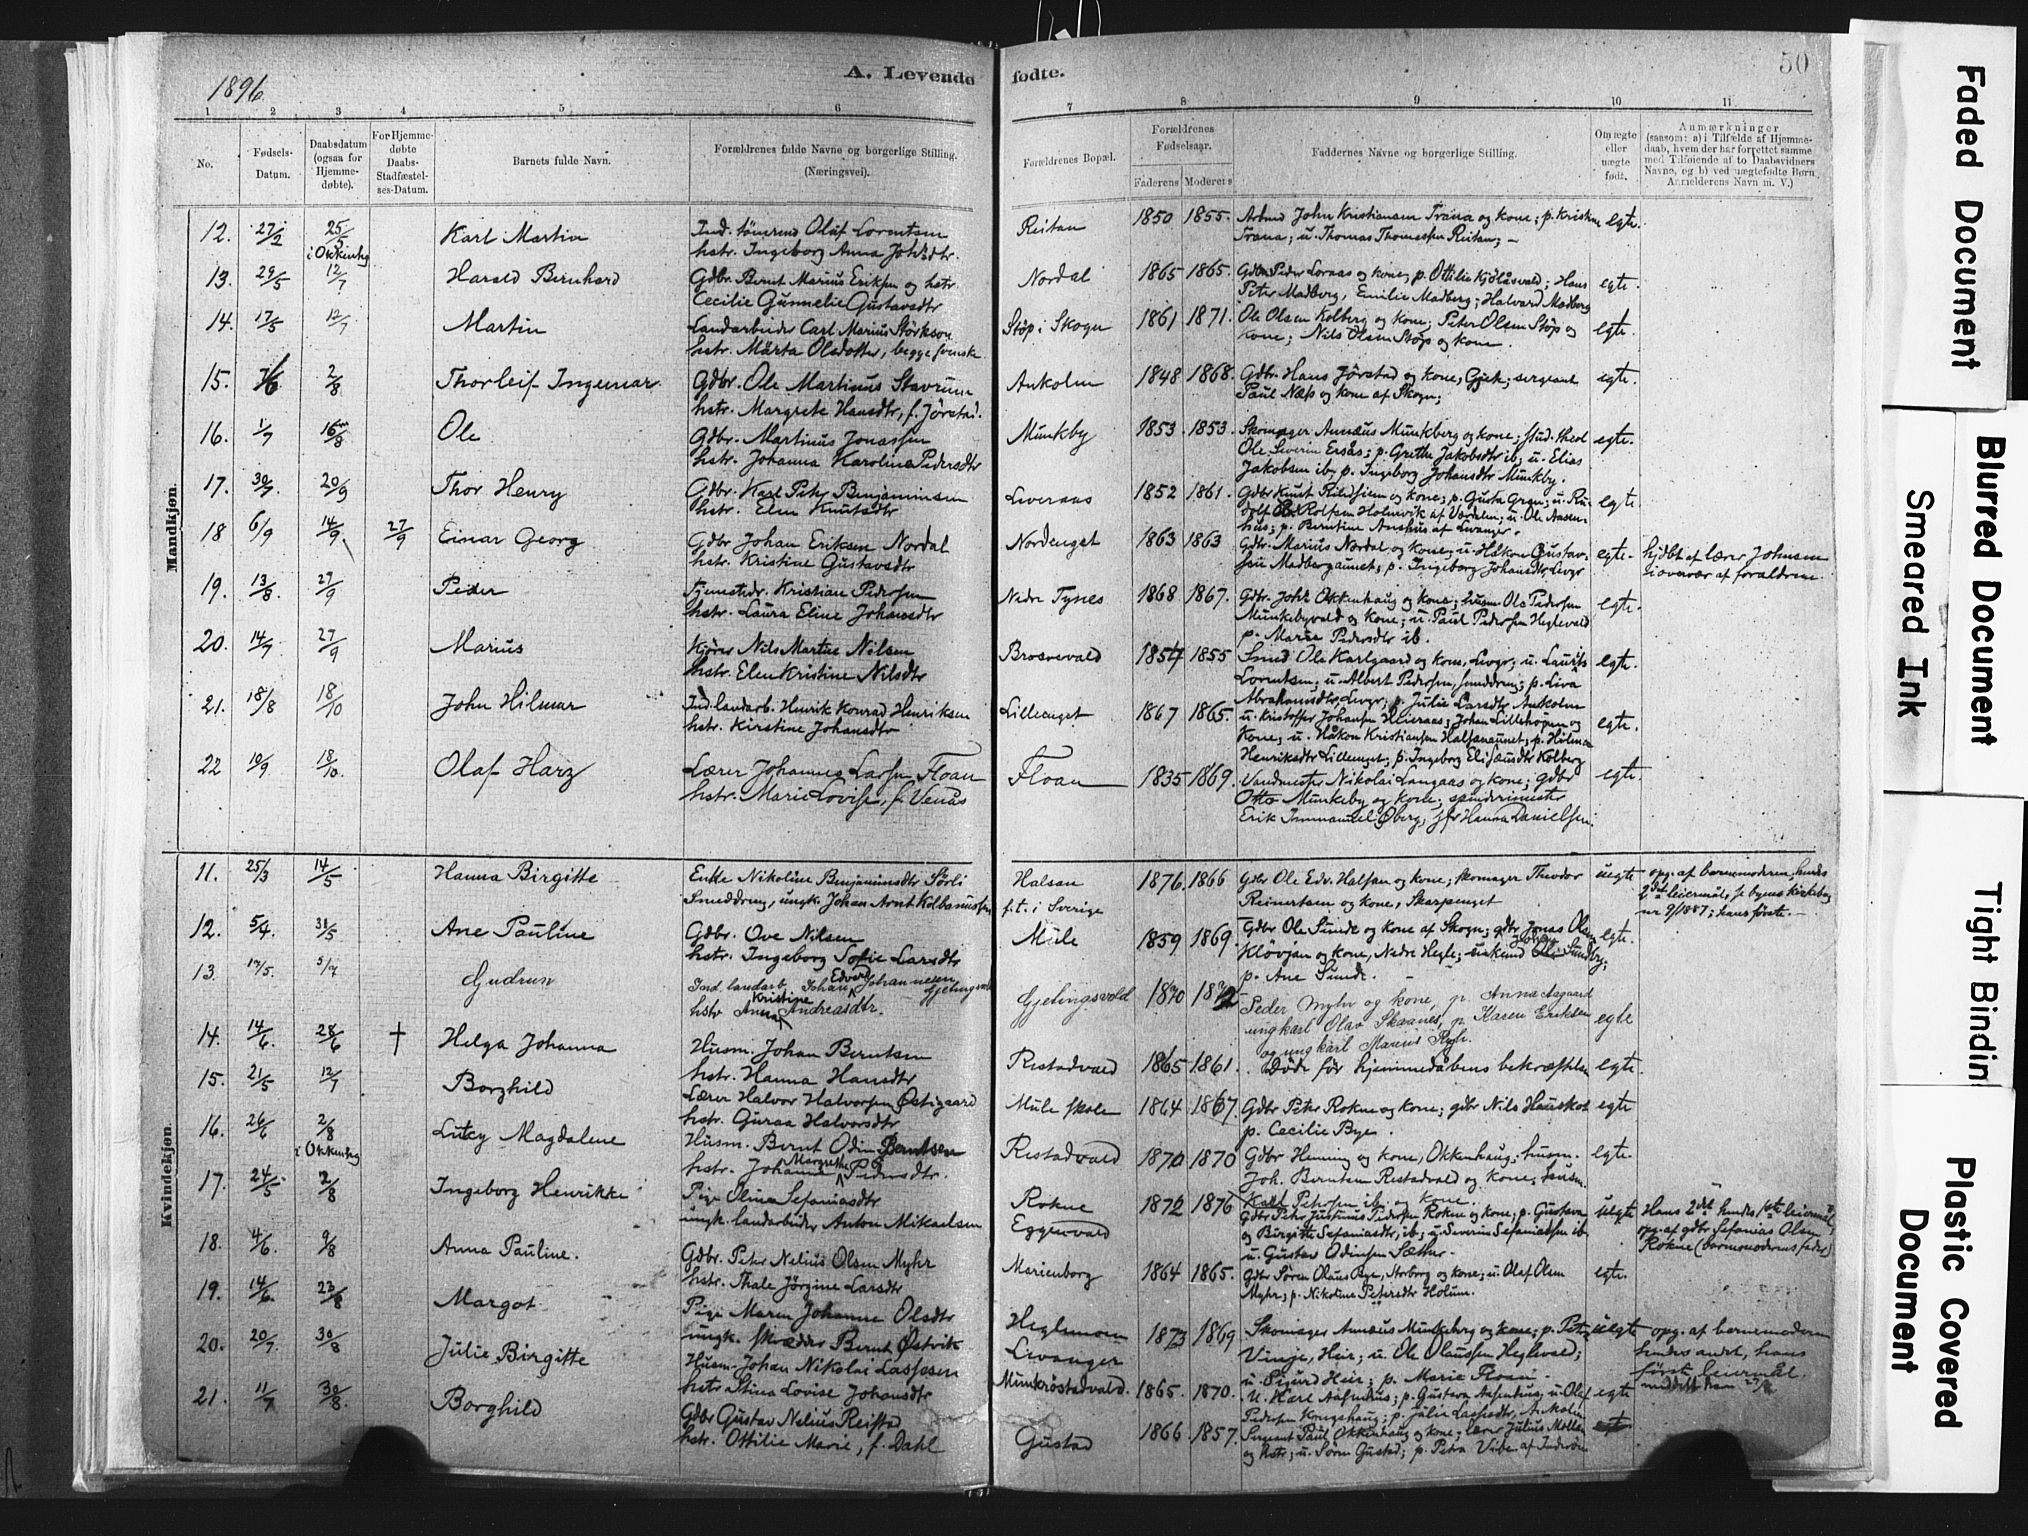 1896.
A. Levende
fødte.
50
1 2 3 4 5 6 7 8 9 10 11
No.
Fødsels-
Datum.
Daabsdatum
(ogsaa for
Hjemme-
døbte).
For Hjemme-
døbte
Daabs-
Stadfæstel-
ses-Datum.
Barnets fulde Navn.
Forældrenes fulde Navne og borgerlige Stilling.
(Næringsvei).
Forældrenes Bopæl.
Forældrenes
Fødselsaar.
Faderens Moderens
Faddernes Navne og borgerlige Stilling.
Om ægte
eller
uægte
født.
Anmærkninger
(saasom: a) i Tilfælde af Hjemme-
daab, hvem der har forrettet samme
med Tilføiende af to Daabsvidners
Navne, og b) ved uægtefødte Børn
Anmelderens Navn m. V.)
Mandkjøn.
12. 27/2 25/5 i Okkenhg Karl Martin
Ind. tömrmd Olaf Lorentsen
hstr. Ingeborg Anna Johsdtr.
Reitan 1850 1855.
Arbmd John Kristiansen Trana og kone; p. Kristine
Trana; u. Thomas Thomassen Reitan; –
egte.
13. 29/5 12/7 Harald Bernhard
Gdbr. Bernt Marius Eriksen og hstr.
Cecilie Gunnelie Gustavsdtr
Nordal 1865 1865.
Gdbr Peder Lornas og kone; p. Ottilie Kjölåsvald; Hans
Peter Madberg, Emilie Madberg; Halvard Madberg
egte.
14. 17/5 12/7 Martin
Landarbeider Carl Marius Storkson
hstr. Märta Olsdotter, begge svenske
Støp i Skogn 1861 1871.
Ole Olsen Kolberg og kone; Peter Olsen Støp og
kone; Nils Olsen Støp og kone.
egte.
15. 7/6 2/8 Thorleif Ingemar
Gdbr. Ole Martinus Stavrum
hstr. Margrete Hansdtr, f. Jörstad.
Ankolm 1848 1868.
Gdbr. Hans Jörstad og kone; Gjert; sergeant
Paul Næss og kone af Skogn;
egte.
16. 1/7 16/8 Ole
Gdbr. Martinus Jonassen
hstr. Johanna Karoline Pedersdtr
Munkby 1853. 1853.
Skomager Annæus Munkberg og kone; stud. theol
Ole Severin Ersås; p. Grethe Jakobsdtr ib; u. Elias
Jakobsen ib; p. Ingeborg Johansdtr Munkby.
egte.
17. 30/7. 20/9 Thor Henry
Gdbr. Karl Peter Benjaminsen
hstr. Elen Knutsdtr
Liveraas 1852 1861.
Gdbr Knut Rildsiem og kone; p. Gusta Gran; u. Ru-
dolf Rolfsen Holmvik af Værdalen; u. Ole Aasen-
hus; p. Berntine Aunshus af Levanger.
egte.
18 6/9 14/9 27/9 Einar Georg
Gdbr Johan Eriksen Nordal
hstr. Kristine Gustavsdtr
Nordenget 1863 1863
Gdbr. Marius Nordal og kone; u. Håkon Gustav-
sen Madbergaunet; p. Ingeborg Johansdtr, Levgr
egte.
hjdbt af lærer Johnsen
i overvær af forældrene.
19. 13/8. 27/9 Peder
Tjenestedr. Kristian Pedersen
hstr. Laura Eline Johansdtr
Nedre Tynes 1868 1867.
Gdbr. Johs Okkenhaug og kone; husm Ole Pedersen
Munkebyvald og kone; u. Paul Pedersen Heglevald
p. Marie Pedersdtr ib.
egte.
20. 14/7 27/9 Marius
Kjører Nils Martin Nilsen
hstr. Elen Kristine Nilsdtr
Brosvevald 1854 1855
Smed Ole Karlgaard og kone, Levgr; u. Laurits
Lorentsen; u. Albert Pedersen, smeddreng; p. Liva
Abrahamsdtr, Levgr; p. Julie Larsdtr Ankolm
egte.
21. 18/8 18/10 John Hilmar
Ind. landarb. Henrik Konrad Henriksen
hstr. Kirstine Johansdtr
Lillenget 1867 1865.
u. Kristoffer Johansen Heieraas; Johan Lillehopen og
kone; u. Håkon Kristiansen Halsanaunet; p. Hilma
Henriksdtr Lillenget; p. Ingeborg Elisæusdtr Kolberg
egte.
22 10/9 18/10. Olaf Harz
Lærer Johannes Larsen Floan
hstr. Marie Lovise, f. Venås
Floan 1835 1869.
Vandmester Nikolai Langaas og kone; gdbr
Otto Munkeby og kone; spinderimester
Erik Immanuel Øberg; jfr Hanna Danielsen.
egte.
Kvindekjøn.
11. 25/3 14/5 Hanna Birgitte
Enke Nikoline Benjaminsdtr Sörli
Smeddreng, ungk. Johan Arnt Kolbanussen
Halsan
f.t. i Sverige
1876. 1866
Gdbr Ole Edv. Halsan og kone; skomager Theodor
Reinertsen og kone, Skarpenget
uegte
opg. af barnemoderen, hendes
2det leiermål, p. byens kirkebog
nr 9/1887; hans første. –
12. 5/4. 31/5 Ane Pauline
Gdbr. Ove Nilsen
hstr. Ingeborg Sofie Larsdtr
Mule 1859 1869.
Gdbr Ole Sunde og kone af Skogn; gdbr Jonas Olsen
Klövjan og kone, Nedre Hegle; enkemd Johan Sundby;
p. Ane Sunde.
egte.
13. 17/5. 5/7 Gudrun
Ind. landarb. Johan Edvard Johannesen Gjetingsvald
hstr Anna Kristine Andreasdtr.
Gjetingsvald 1870 1872
Peder Myhr og kone, p. Anna Aagaard
ungkarl Olav Skaanes, p. Karen Eriksen
og ungkarl Marius Myhr.
egte
14. 14/6. 28/6 † Helga Johanna
Husm. Johan Berntsen
hstr. Hanna Hansdtr
Restadvald 1865 1861.
Døde før hjemmedåbens bekræftelse
egte.
15. 21/5 12/7 Borghild
Lærer Halvor Halvorsen Østigaard
hstr. Guraa Halvorsdtr
Mule skole 1864 1867.
Gdbr Peter Rokne og kone; gdbr Nils Hauskot
p. Cecilie Bye.
egte
16. 26/6 2/8 i Okkenhg Lucy Magdalene
Husm. Bernt Odin Berntsen
hstr. Johanna Margrethe Pedersdtr.
Restadvald 1870 1870
Gdbr Henning og kone, Okkenhaug; husm.
Joh. Berntsen Restadvald og kone; husm.
Karl Petersen ib. og kone.
egte.
17. 24/5 2/8 Ingeborg Henrikke
Pige Olina Sefaniasdtr
ungk. landarbeider Anton Mikaelsen
Rokne
Eggevald
1872 1876
Gdbr Peter Justinus Pedersen Rokne og kone; p. Gustava
og Birgitte Sefaniasdtr, ib.; u. Severin Sefaniassen ib
u. Gustav Odinsen Sæther.
uegte
Hans 2det hendes 1ste leiermål,
opg. af gdbr Sefanias Olsen
Rokne (barnemoderens fader)
18. 4/6. 9/8 Anna Pauline.
Gdbr. Peter Nelius Olsen Myhr
hstr. Thale Jörgine Larsdtr
Marienborg 1864 1865.
Gdbr Sören Olaus Bye, Norborg og kone; u. Olaf Olsen
Myhr; p. Nikoline Petersdtr Holum.
egte.
19. 14/6. 23/8 Margot.
Pige Maren Johanne Olsdtr
ungk. skrædder Bernt Østvik
Heglemoen
Levanger
1873 1869
Skomager Annæus Munkeberg og kone; p. Petra
Vinje, Heir; u. Ole Olaussen Heglevald;
u. Sigurd Heir; p. Marie Floan.
uegte
opg. af barnemoderen
hendes andet, hans
første leiermål.
20. 20/7. 30/8 Julie Birgitte
Husm. Johan Nikolai Lassesen
hstr Stina Lovise Johansdtr
Munkröstadvald. 1865. 1870.
U. Karl Aasenhus; p. Gustava Aasenhus; u. Olaf
Pedersen Kongshaug; p. Julie Lassedtr, Ankolm
egte
21. 11/7 30/8. Borghild
Gdbr Gustav Nelius Reistad
hstr. Ottilie Marie, f. Dahl
Gustad 1866 1857.
Sergeant Paul Okkenhaug og kone; lærer Julius Molla
og hstr; u. Sören Gustad; p. Petra Vibe af Inderøen
Faded Document
Blurred Document
Smeared Ink
Tight Bindin
Plastic Covered
Document